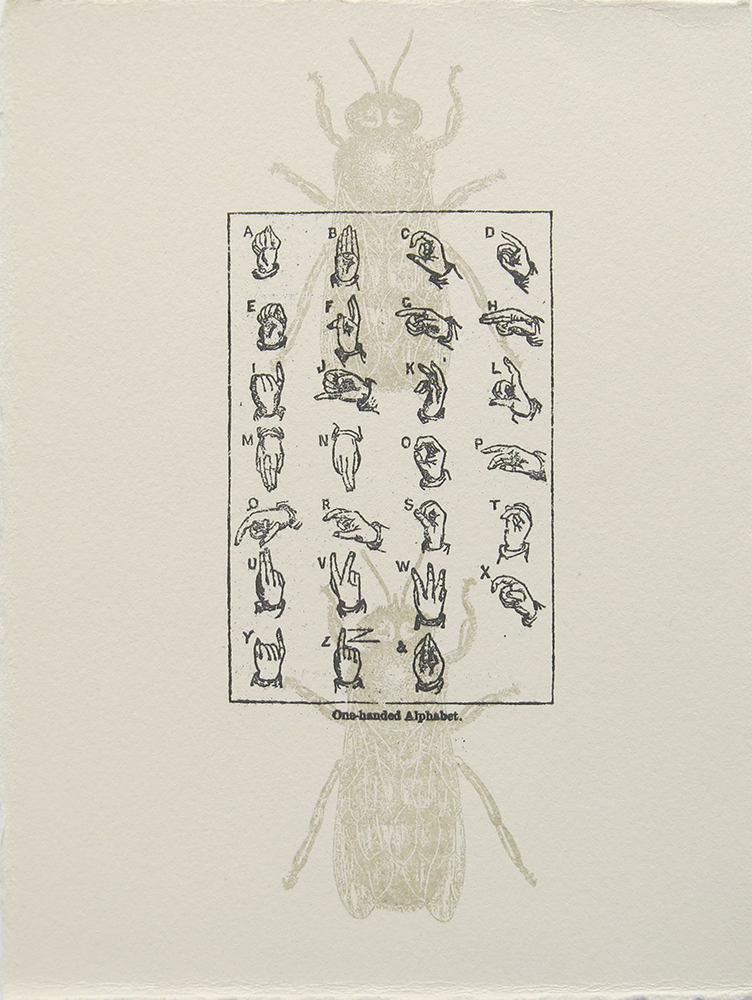 A B C D
E F G H
I J K L
M N O P
Q R S T
U V W X
Y Z Z &
One-handed Alphabet.